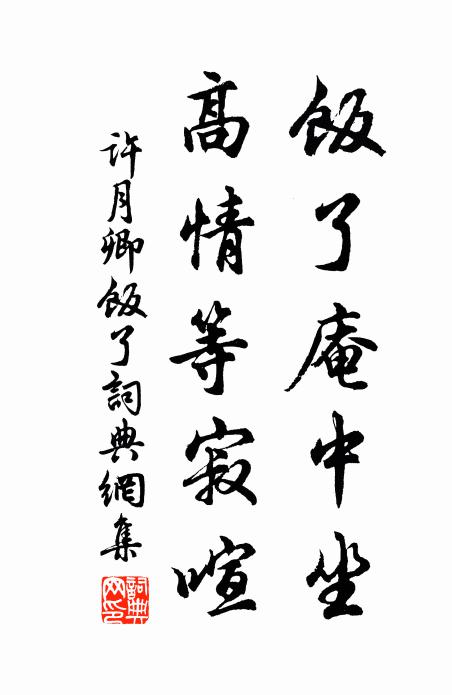 飯了庵中坐
高情等寂喧
許月卿飯了詞典網集
詞典
网印